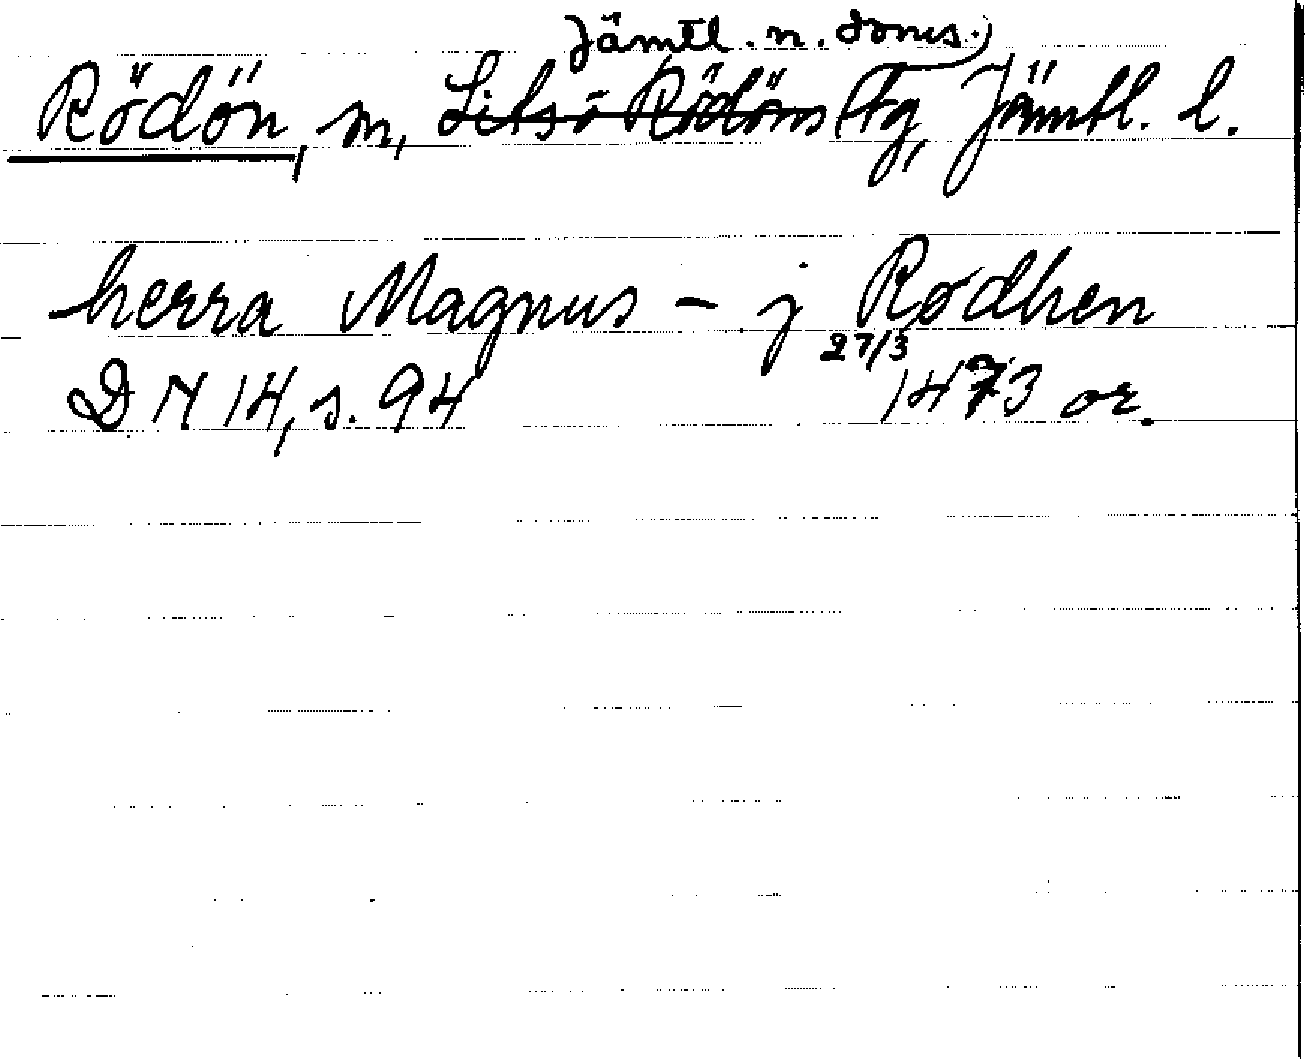 Jämtl. n. doms.
Rödön, sn, Lits o Rödöns tg, Jämtl. l.
herra Magnus - j Rødhen
27/3
DN 14, s. 94 1473 or.